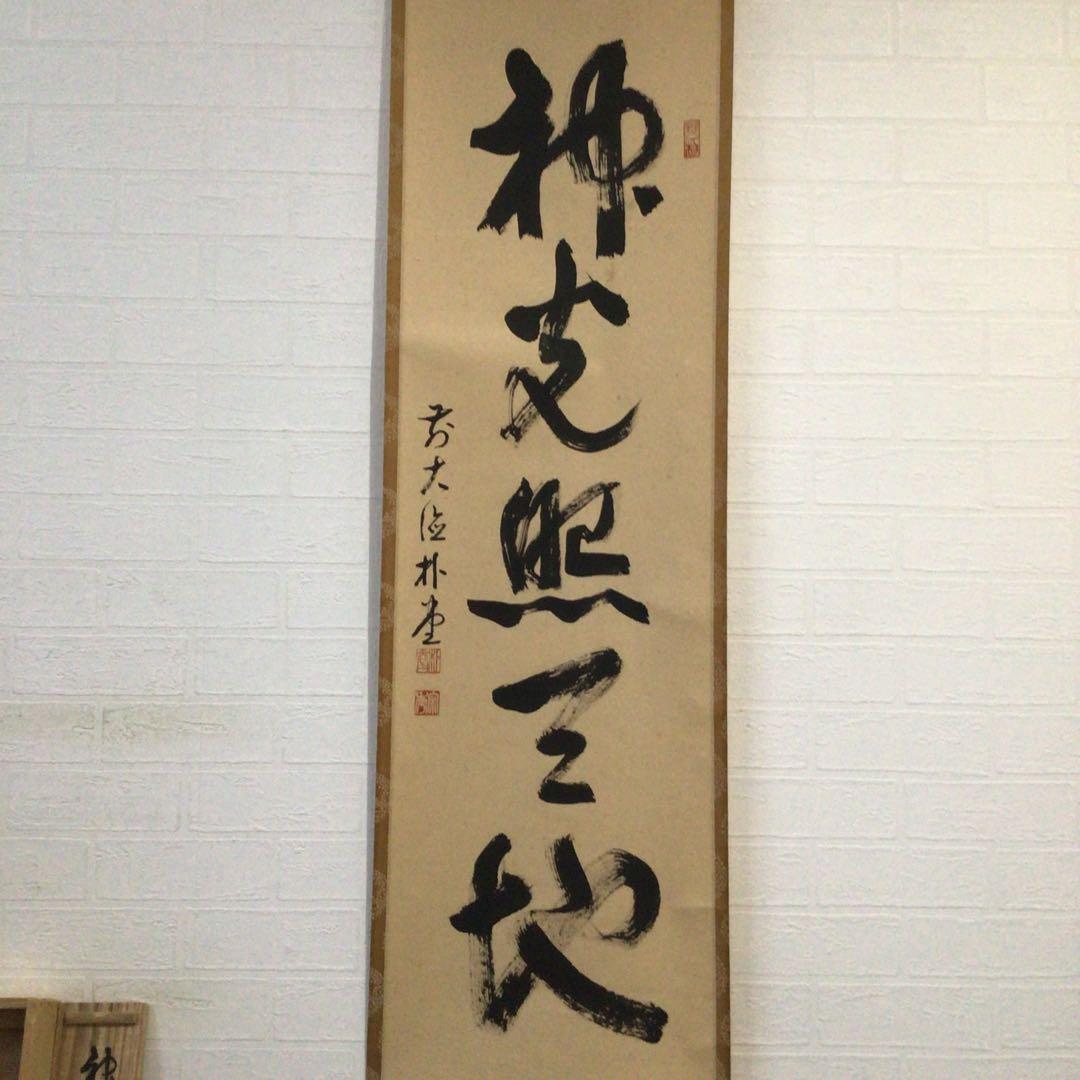 神光照天地
前大徳朴堂
神